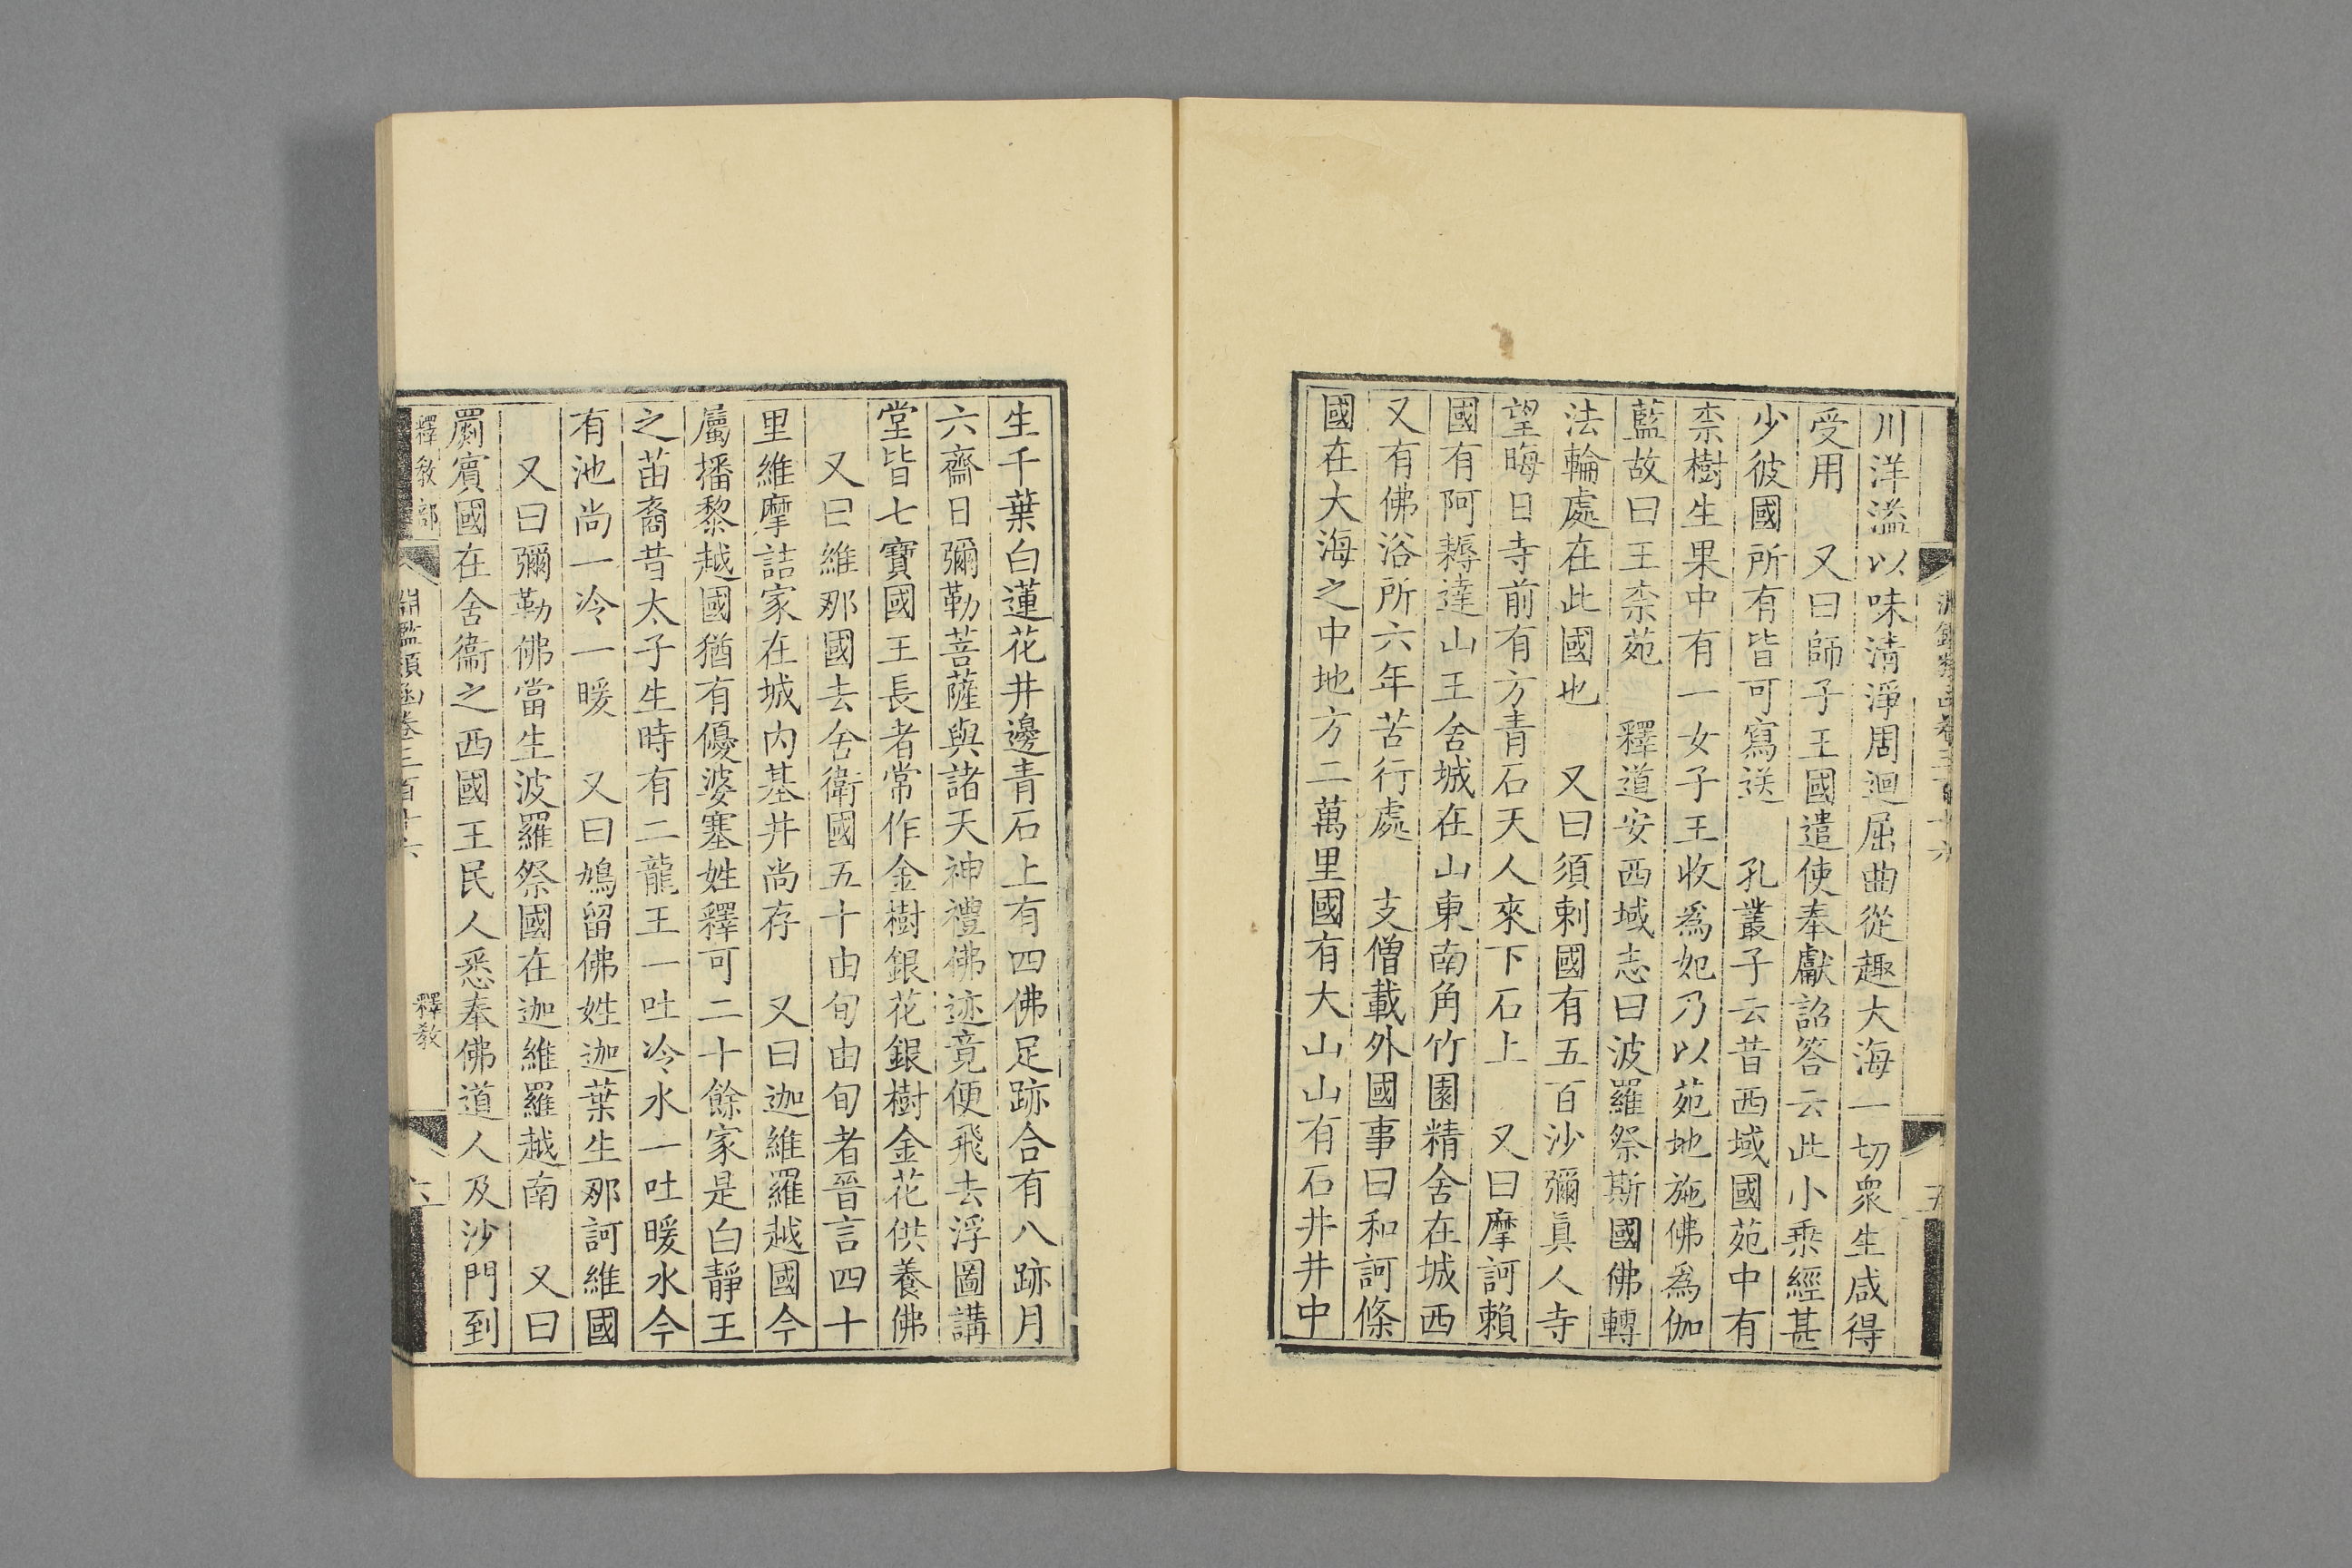 川洋溢以味清淨周迴屈曲從趣大海一切衆生咸得
受用　又曰師子王國遣使奉獻詔答云此小乘經甚
少彼國所有皆可寫送　孔叢子云昔西域國苑中有
柰樹生果中有一女子王收爲妃乃以苑地施佛爲伽
藍故曰王柰苑　釋道安西域志曰波羅祭斯國佛轉
法輪處在此國也　又曰須剌國有五百沙彌眞人寺
望晦日寺前有方青石天人來下石上　又曰摩訶賴
國有阿耨達山王舍城在山東南角竹園精舍在城西
又有佛浴所六年苦行處　支僧載外國事曰和訶條
國在大海之中地方二萬里國有大山山有石井井中
生千葉白蓮花井邊青石上有四佛足跡合有八跡月
六齋日彌勒菩薩與諸天神禮佛迹竟便飛去浮圖講
堂皆七寶國王長者常作金樹銀花銀樹金花供養佛
又曰維那國去舍衛國五十由旬由旬者晉言四十
里維摩詰家在城內基井尚存　又曰迦維羅越國今
屬播黎越國猶有優婆塞姓釋可二十餘家是白靜王
之苗裔昔太子生時有二龍王一吐冷水一吐暖水今
有池尚一冷一暖　又曰鳩留佛姓迦葉生那訶維國
又曰彌勒佛當生波羅祭國在迦維羅越南　又曰
罽賓國在舍衞之西國王民人悉奉佛道人及沙門到
釋教部
淵鑑類函卷三百十六
釋教
六